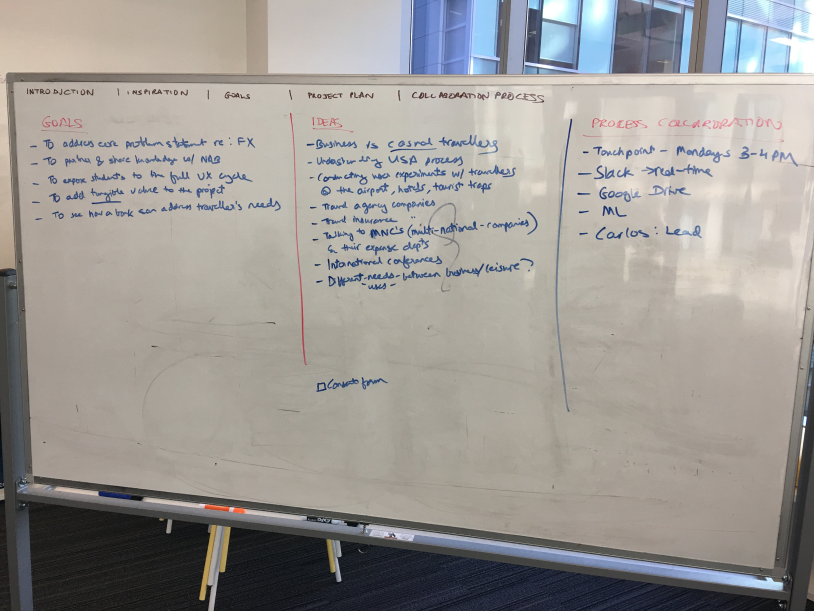 INTRODUCTION | INSPIRATION | GOALS | PROJECT PLAN | COLLABORATION PROCESS
GOALS
- To address core problem statement re: FX
- To partner & share knowledge w/ NAB
- To expose students to the full UX cycle
- To add tangible value to the project
- To see how a bank can address traveller's needs
IDEAS
- Business vs casual travellers
- Understanding USA process
- Conducting user experiments w/ travellers
@ the airport, hotels, tourist traps
- Travel agency companies
- Travel insurance "
- Talking to MNC's (multi-national-companies)
& their expense depts
- International conferences
- Different-needs-between business/leisure?
-uses-
Consent form
PROCESS COLLABORATION
- Touchpoint - Mondays 3-4PM
- Slack → real-time
- Google Drive
- ML
- Carlos: Lead